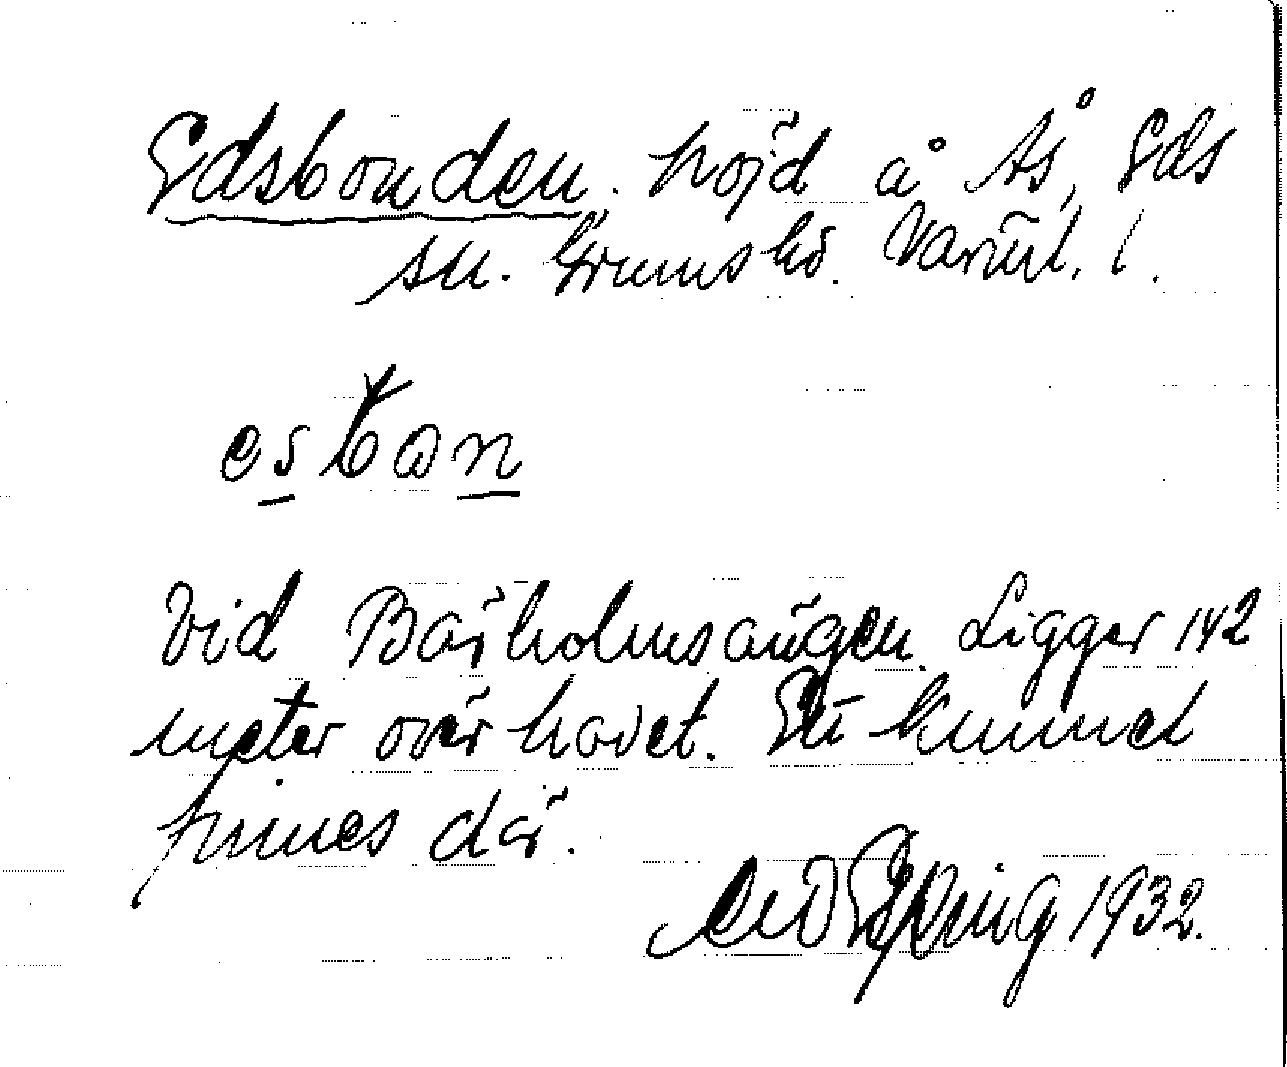 Edsbonden. höjd å Ås, Eds
sn. Grums hd. Värml. l.
esban
Vid Bärholmsängen. Ligger 142
meter över havet. Ett kummel
finnes där.
1932.